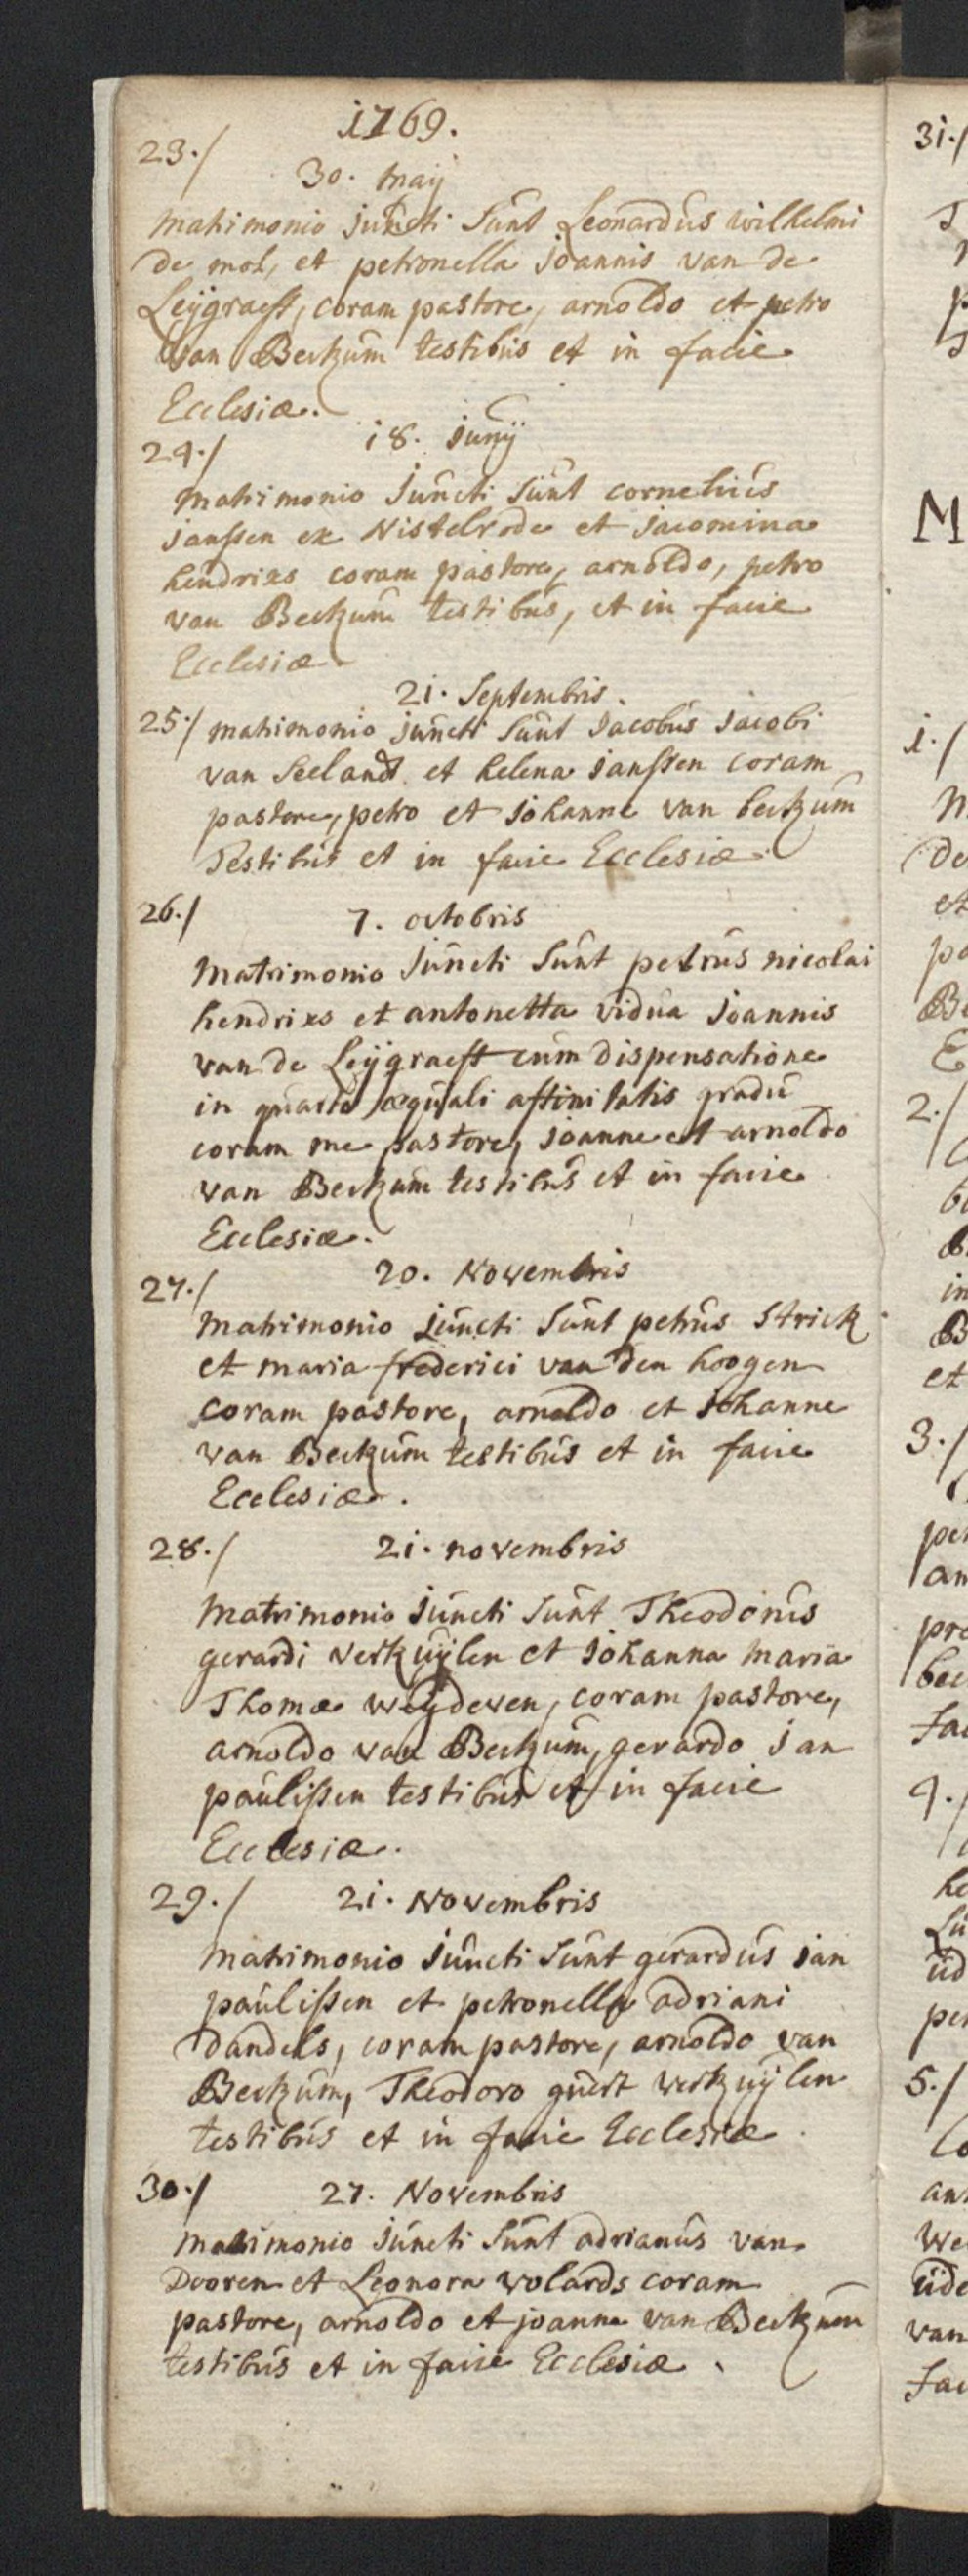 1769.
23./
30. maij
matrimonio juncti sunt Leonardus wilhelmi
de mol, et petronella joannis van de
Leijgraeff, coram pastore, arnoldo et petro
van Beckum testibus et in facie
Ecclesiæ.
24./ 18. junij
matrimonio juncti sunt cornelius
janssen ex Nistelrode et jacomina
hendrixs coram pastore, arnoldo, petro
van Beckum testibus, et in facie
Ecclesiæ
21. Septembris.
25./ matrimonio juncti sunt jacobus jacobi
van Seelandt et helena janssen coram
pastore, petro et johanne van beckum
Testibus et in facie Ecclesiæ.
26./ 7. octobris
matrimonio juncti sunt petrus nicolai
hendrixs et antonetta vidua joannis
van de Leijgraeff cum dispensatione
in quarto æquali affinitatis gradu
coram me pastore, joanne et arnoldo
van Beckum testibus et in facie
Ecclesiæ.
27./ 20. Novembris
matrimonio juncti sunt petrus Strick
et maria frederici van den hoogen
coram pastore, arnoldo et johanne
van Beckum testibus et in facie
Ecclesiæ.
28./ 21. novembris
matrimonio juncti sunt Theodorus
gerardi verkuijlen et johanna maria
Thomæ weijdeven, coram pastore,
arnoldo van Beckum, gerardo jan
paulissen testibus et in facie
Ecclesiæ.
29./ 21. Novembris
matrimonio juncti sunt gerardus jan
paulissen et petronella adriani
dandels, coram pastore, arnoldo van
Beckum, Theodoro guert verkuijlen
testibus et in facie Ecclesiæ.
30./ 27. Novembris
matrimonio juncti sunt adrianus van
Dooren et Leonora wolards coram
pastore, arnoldo et joanne van Beckum
testibus et in facie Ecclesiæ.
31./
M
1./
de
et
2./
in
et
3./
4./
5./
van